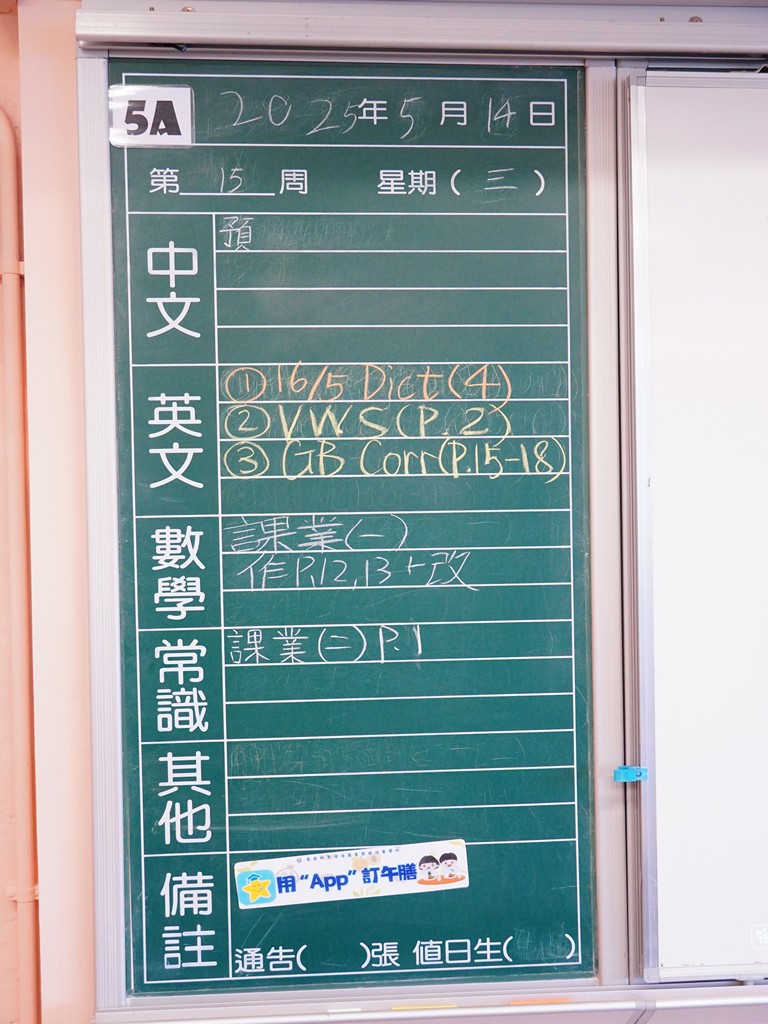 5A 2025年5月14日
第 15 周 星期(三)
中文 預
英文 ①16/5 Dict(4)
②VWS(P.2)
③GB Corr(P.15-18)
數學 課業(一)
作P.12,13+改
常識 課業(二)P.1
其他
備註
用“App”訂午膳
通告( )張 值日生( )